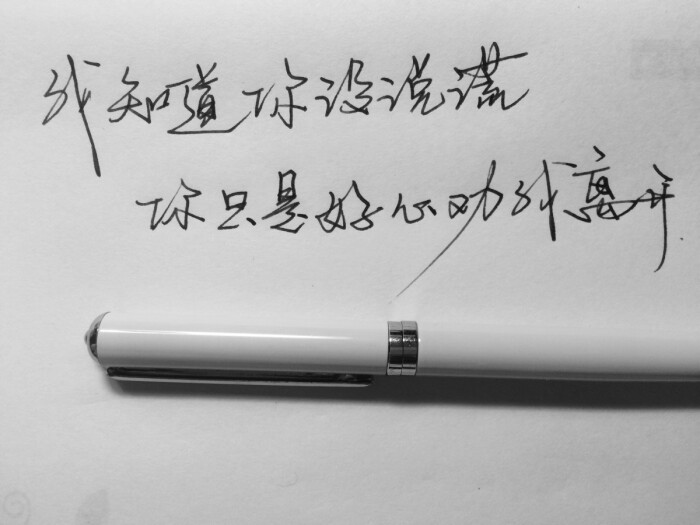 我知道你没说谎
你只是好心劝我离开